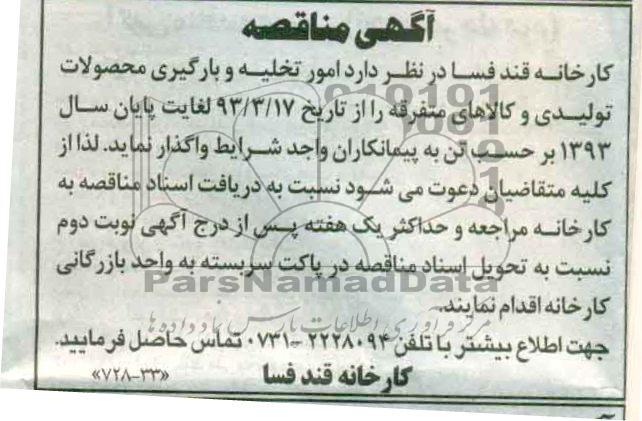 آگهی مناقصه
کارخانه قند فسا در نظر دارد امور تخلیه و بارگیری محصولات
تولیدی و کالاهای متفرقه را از تاریخ ۹۳/۳/۱۷ لغایت پایان سال
۱۳۹۳ بر حسب تن به پیمانکاران واجد شرایط واگذار نماید. لذا از
کلیه متقاضیان دعوت می شود نسبت به دریافت اسناد مناقصه به
کارخانه مراجعه و حداکثر یک هفته پس از درج آگهی نوبت دوم
نسبت به تحویل اسناد مناقصه در پاکت سربسته به واحد بازرگانی
ParsNamadData
کارخانه اقدام نمایند.
مرکز فرآوری اطلاعات پارس نماد داده ها
جهت اطلاع بیشتر با تلفن ۲۲۲۸۰۹۴-۰۷۳۱ تماس حاصل فرمایید.
کارخانه قند فسا «۷۲۸-۳۳»